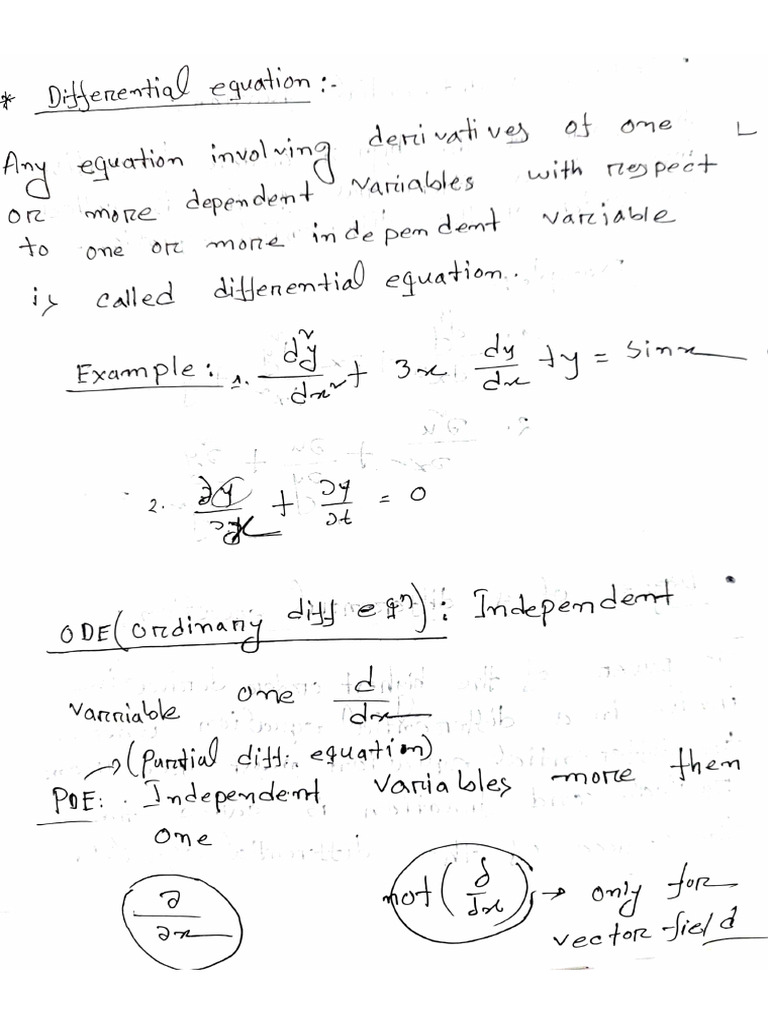 * Differential equation :-
Any equation involving derivatives of one
or more dependent variables with respect
to one or more independent variable
is called differential equation.
Example: 1. d²y/dx² + 3x dy/dx + y = sinx
2. ∂y/∂x + ∂y/∂t = 0
ODE (ordinary diff eqⁿ) : Independent
varriable one d/dx
→ (Partial diff. equation)
PDE: Independent variables more then
one
∂/∂x not (δ/δx) → only for
vector field